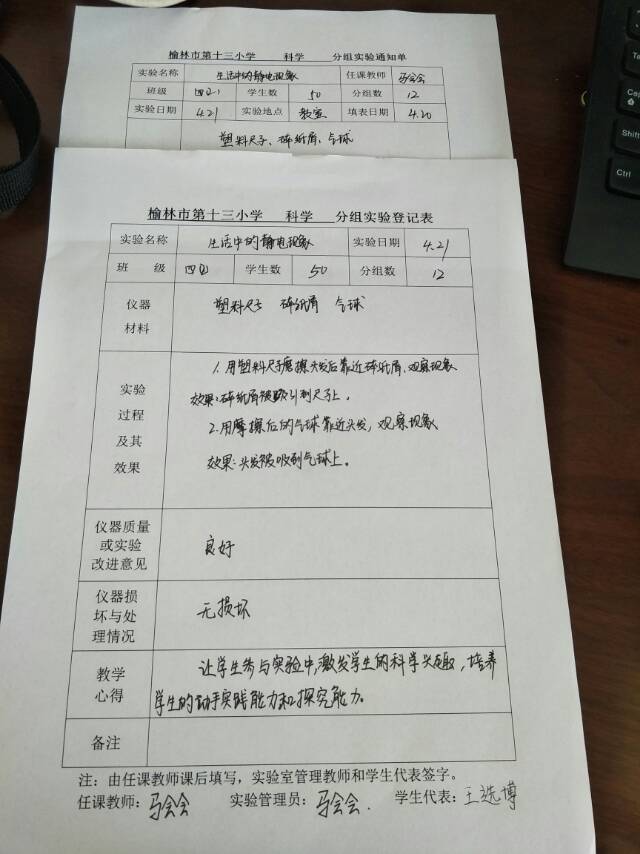 榆林市第十三小学 科学 分组实验通知单
实验名称 生活中的静电现象 任课教师 马会会
班级 四(2) 学生数 50 分组数 12
实验日期 4.21 实验地点 教室 填表日期 4.20
塑料尺子、碎纸屑、气球
榆林市第十三小学 科学 分组实验登记表
实验名称 生活中的静电现象 实验日期 4.21
班 级 四(2) 学生数 50 分组数 12
仪器 塑料尺子 碎纸屑 气球
材料
1.用塑料尺子磨擦头发后靠近碎纸屑,观察现象
实验 效果:碎纸屑被吸引到尺子上。
过程 2.用摩擦后的气球靠近头发,观察现象
及其
效果 效果:头发被吸到气球上。
仪器质量
或实验 良好
改进意见
仪器损
坏与处 无损坏
理情况
教学 让学生参与实验中,激发学生的科学兴趣,培养
心得 学生的动手实践能力和探究能力。
备注
注:由任课教师课后填写,实验室管理教师和学生代表签字。
任课教师:马会会 实验管理员:马会会. 学生代表:王选博
Ctrl
Shift